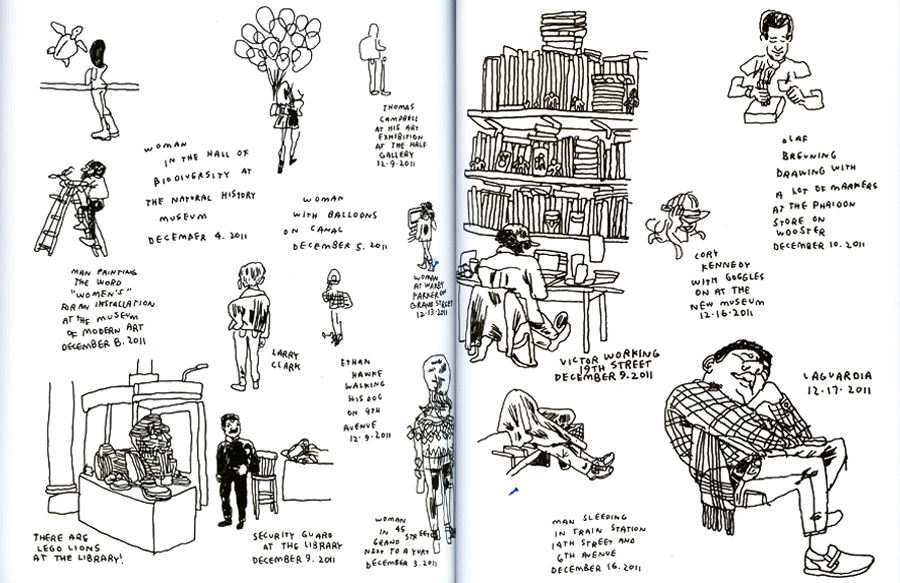 THOMAS
CAMPBELL
AT HIS ART
EXHIBITION
AT THE HALF
GALLERY
12.9.2011
WOMAN
IN THE HALL OF
BIODIVERSITY AT
THE NATURAL HISTORY
MUSEUM
DECEMBER 4. 2011
WOMAN
WITH BALLOONS
ON CANAL
DECEMBER 5. 2011
MAN PAINTING
THE WORD
"WOMEN'S"
FOR AN INSTALLATION
AT THE MUSEUM
OF MODERN ART
DECEMBER 8. 2011
WOMAN
AT WARBY
PARKER ON
GRAND STREET
12.13.2011
LARRY
CLARK
ETHAN
HAWKE
WALKING
HIS DOG
ON 9TH
AVENUE
12.9.2011
THERE ARE
LEGO LIONS
AT THE LIBRARY!
SECURITY GUARD
AT THE LIBRARY
DECEMBER 9. 2011
WOMAN
IN 45
GRAND STREET
NEXT TO A YURT
DECEMBER 3. 2011
OLAF
BREUNING
DRAWING WITH
A LOT OF MARKERS
AT THE PHAIDON
STORE ON
WOOSTER
DECEMBER 10. 2011
CORY
KENNEDY
WITH GOGGLES
ON AT THE
NEW MUSEUM
12.16.2011
VICTOR WORKING
19TH STREET
DECEMBER 9.2011
LAGUARDIA
12.17.2011
MAN SLEEPING
IN TRAIN STATION
14TH STREET AND
6TH AVENUE
DECEMBER 16. 2011